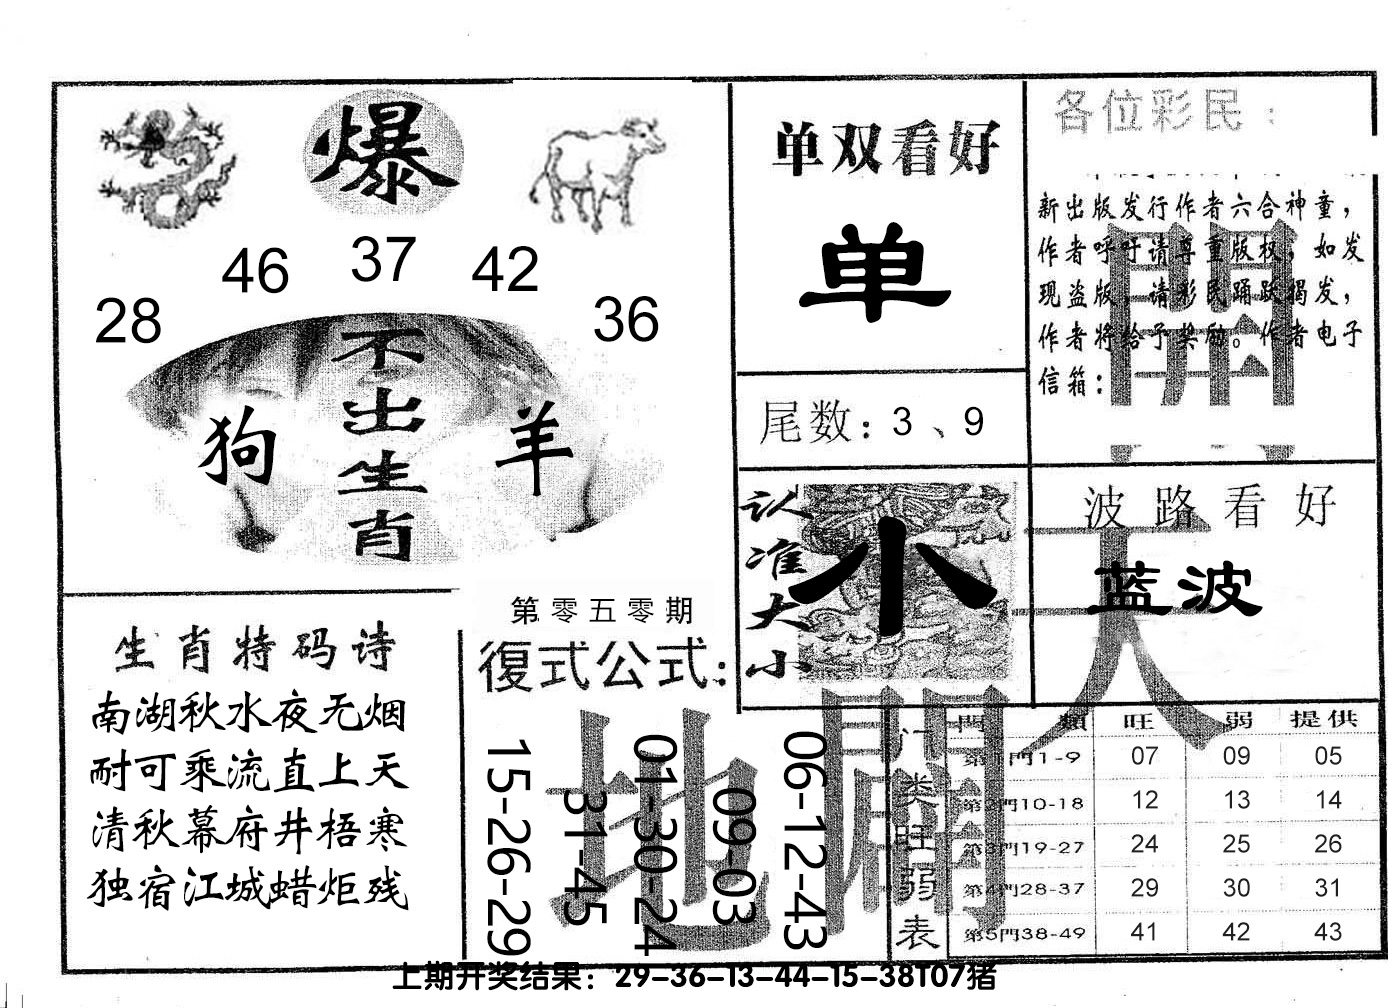 爆
28 46 37 42 36
不出生肖
狗 羊
单双看好
单
尾数：3、9
各位彩民：
新出版发行作者六合神童，
作者呼吁请尊重版权，如发
现盗版，请彩民踊跃揭发，
作者将给予奖励。作者电子
信箱：
认准大小
小
波路看好
蓝波
天
地
開
生肖特码诗
南湖秋水夜无烟
耐可乘流直上天
清秋幕府井梧寒
独宿江城蜡炬残
第零五零期
復式公式：
15-26-29
31-45
01-30-24
09-03
06-12-43
门类旺弱表
門 類 旺 弱 提供
第1門1-9 07 09 05
第2門10-18 12 13 14
第3門19-27 24 25 26
第4門28-37 29 30 31
第5門38-49 41 42 43
上期开奖结果：29-36-13-44-15-38T07猪